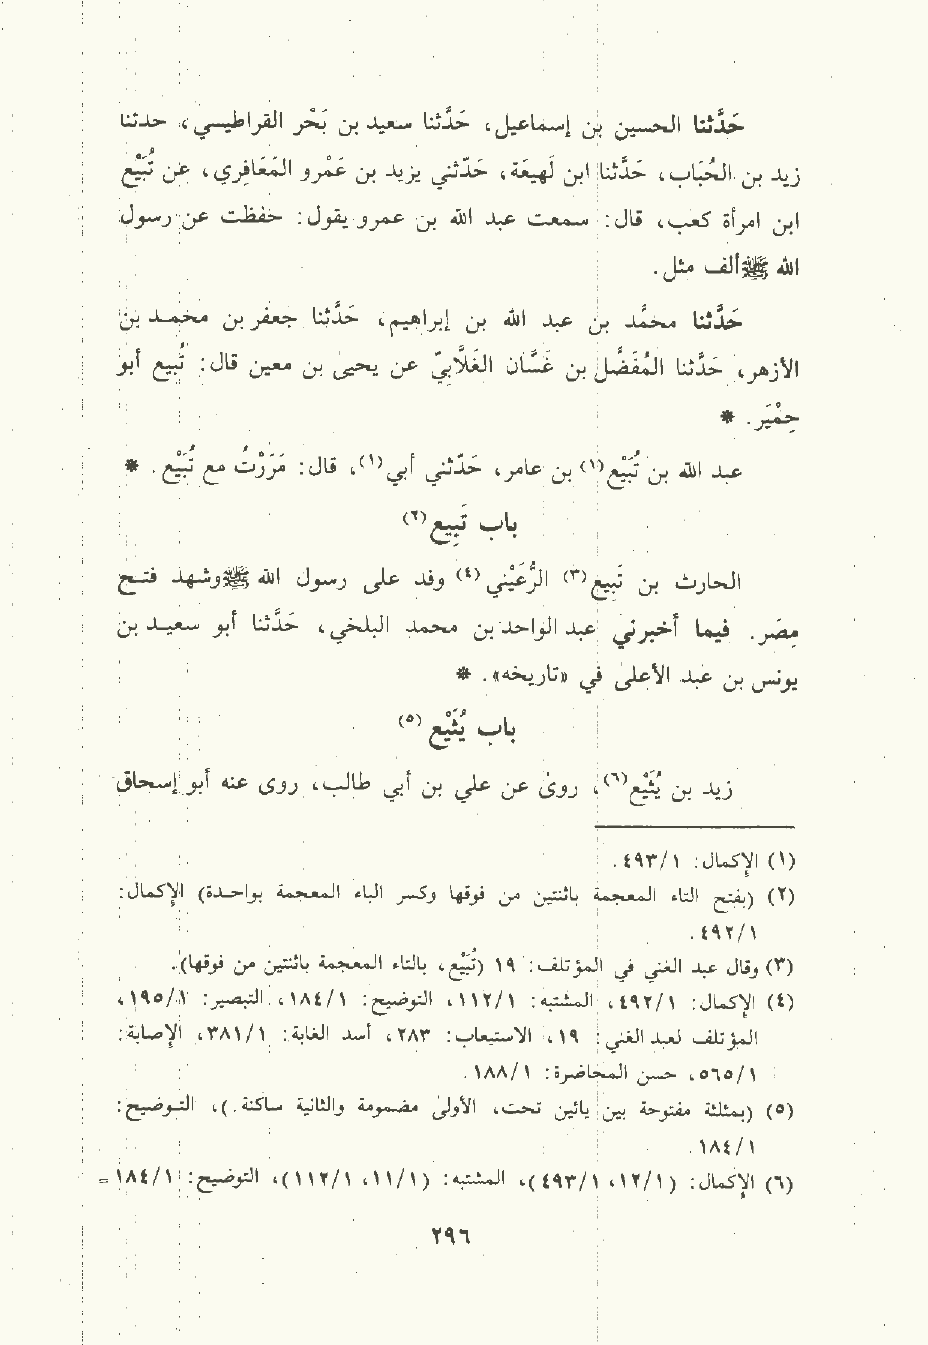 حَدَّثنا الحسين بن إسماعيل، حَدَّثنا سعيد بن بَحْر القراطيسي، حدثنا
زيد بن الحُبَاب، حَدَّثنا ابن لَهيعَة، حَدّثني يزيد بن عَمْرو المَعَافِري، عن تُبَيْع
ابن امرأة كعب، قال: سمعت عبد الله بن عمرو يقول: حفظت عن رسول
الله ﷺ ألف مثل.
حَدَّثنا محمَّد بن عبد الله بن إبراهيم، حَدَّثنا جعفر بن محمد بن
الأزهر، حَدَّثنا المُفَضَّل بن غَسَّان الغَلَّابيّ عن يحيى بن معين قال: تُبيع أبو
حِمْيَر. *
عبد الله بن تُبَيْع(١) بن عامر، حَدّثني أبي(١)، قال: مَرَرْتُ مع تُبَيْع. *
باب تَبِيع(٢)
الحارث بن تَبِيع(٣) الرُّعَيْني(٤) وفد على رسول الله ﷺ وشهد فتح
مِصَر. فيما أخبرني عبد الواحد بن محمد البلخي، حَدَّثنا أبو سعيد بن
يونس بن عبد الأعلى في «تاريخه». *
باب يُثَيْع(٥)
زيد بن يُثَيْع(٦)، روى عن علي بن أبي طالب، روى عنه أبو إسحاق
(١) الإكمال: ٤٩٣/١.
(٢) (بفتح التاء المعجمة باثنتين من فوقها وكسر الباء المعجمة بواحدة) الإكمال:
٤٩٢/١.
(٣) وقال عبد الغني في المؤتلف: ١٩ (تُبَيْع، بالتاء المعجمة باثنتين من فوقها).
(٤) الإكمال: ٤٩٢/١، المشتبه: ١١٢/١، التوضيح: ١٨٤/١، التبصير: ١٩٥/١،
المؤتلف لعبد الغني: ١٩، الاستيعاب: ٢٨٣، أسد الغابة: ٣٨١/١، الإصابة:
٥٦٥/١، حسن المحاضرة: ١٨٨/١.
(٥) (بمثلثة مفتوحة بين يائين تحت، الأولى مضمومة والثانية ساكنة.)، التوضيح:
١٨٤/١.
(٦) الإكمال: (١٢/١، ٤٩٣/١)، المشتبه: (١١/١، ١١٢/١)، التوضيح: ١٨٤/١=
٢٩٦